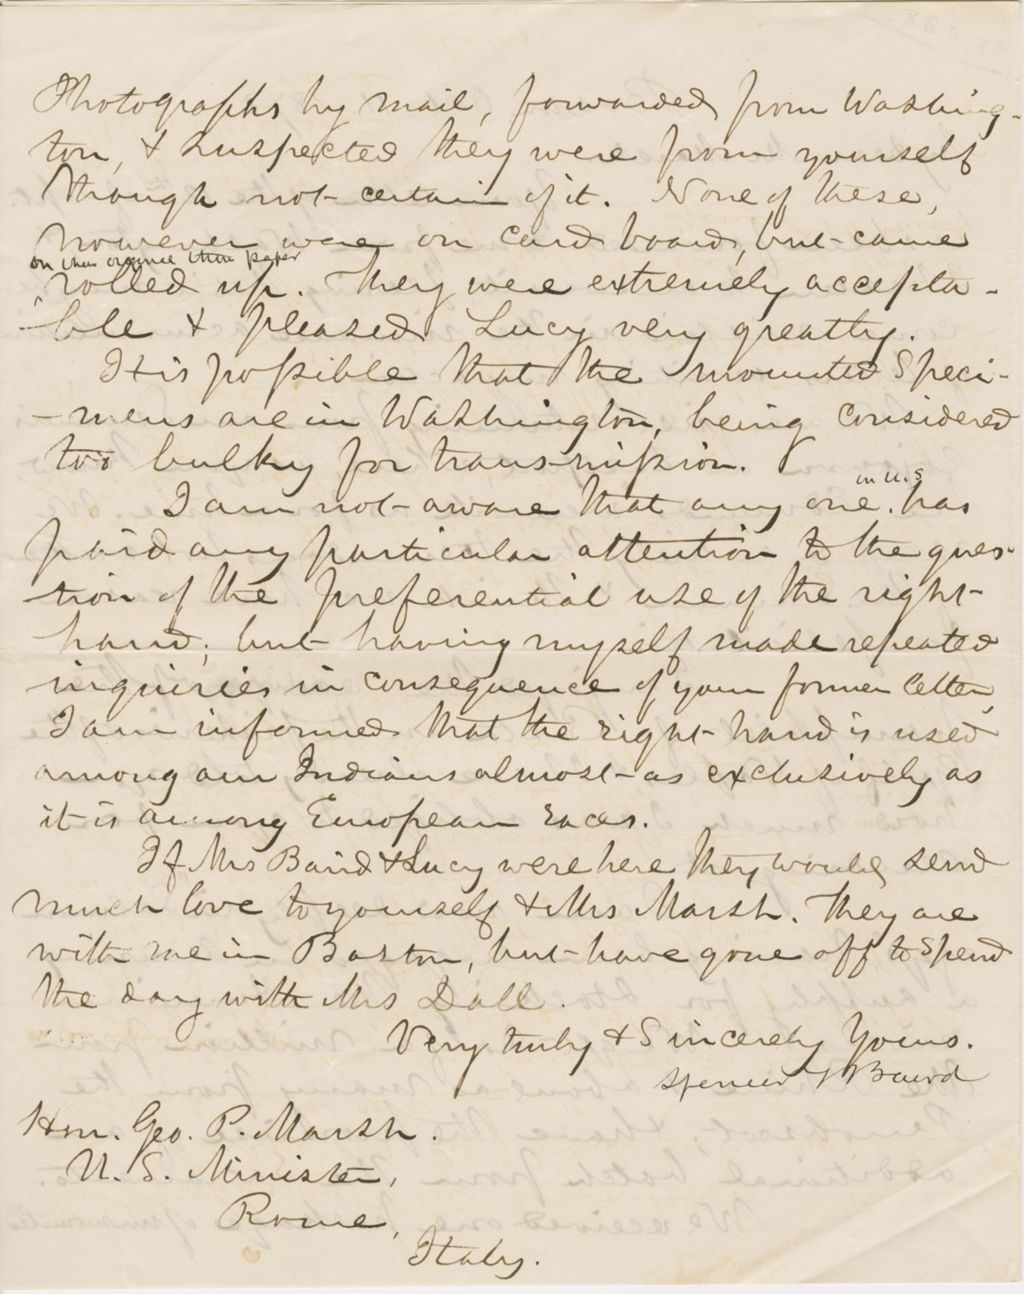 Photographs by mail, forwarded from Washing-
ton, & suspected they were from yourself
though not certain of it. None of these,
however were on card board, but came
on thin paper
rolled up. They were extremely accepta-
-ble & pleased Lucy very greatly.
It is possible that the mounted Speci-
-mens are in Washington, being considered
too bulky for transmission.
in U.S
I am not aware that any one has
paid any particular attention to the ques-
-tion of the preferential use of the right-
hand; but having myself made repeated
inquiries in consequence of your former letter,
I am informed that the right hand is used
among our Indians almost as exclusively as
it is among European races.
If Mrs Baird & Lucy were here they would send
much love to yourself & Mrs Marsh. They are
with me in Boston, but have gone off to Spend
the day with Mrs Dall.
Very truly & Sincerely Yours.
Spencer F Baird
Hon. Geo. P. Marsh.
U. S. Minister,
Rome,
Italy.